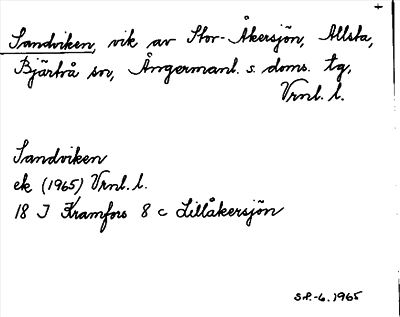 +
Sandviken, vik av Stor-Åkersjön, Allsta,
Bjärtrå sn, Ångermanl. s. doms. tg,
Vrnl. l.
Sandviken
ek (1965) Vrnl. l.
18 I Kramfors 8 c Lillåkersjön
S.P.-6.1965